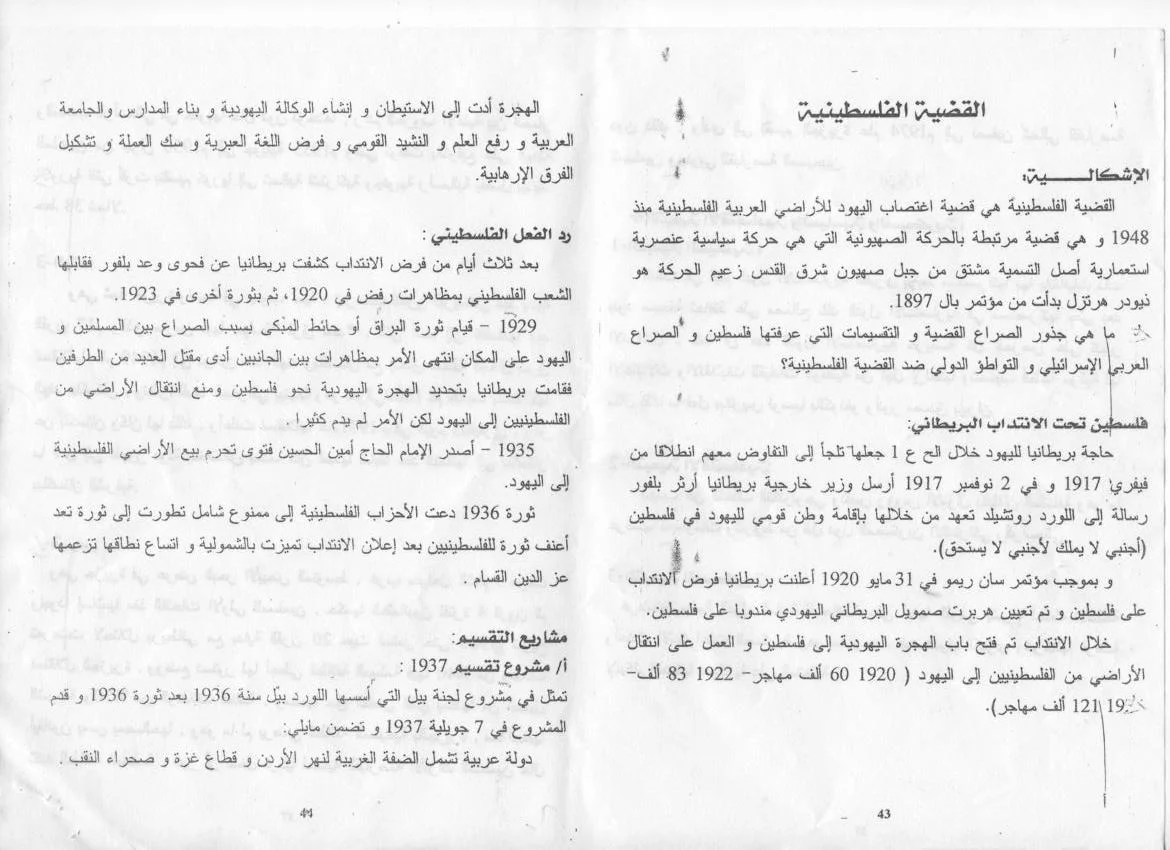 القضية الفلسطينية
الإشكالـــــية:
القضية الفلسطينية هي قضية اغتصاب اليهود للأراضي العربية الفلسطينية منذ
1948 و هي قضية مرتبطة بالحركة الصهيونية التي هي حركة سياسية عنصرية
استعمارية أصل التسمية مشتق من جبل صهيون شرق القدس زعيم الحركة هو
ذيودر هرتزل بدأت من مؤتمر بال 1897.
ما هي جذور الصراع القضية و التقسيمات التي عرفتها فلسطين و الصراع
العربي الإسرائيلي و التواطؤ الدولي ضد القضية الفلسطينية؟
فلسطين تحت الانتداب البريطاني:
حاجة بريطانيا لليهود خلال الح ع 1 جعلها تلجأ إلى التفاوض معهم انطلاقا من
فيفري 1917 و في 2 نوفمبر 1917 أرسل وزير خارجية بريطانيا أرثر بلفور
رسالة إلى اللورد روتشيلد تعهد من خلالها بإقامة وطن قومي لليهود في فلسطين
(أجنبي لا يملك لأجنبي لا يستحق).
و بموجب مؤتمر سان ريمو في 31 مايو 1920 أعلنت بريطانيا فرض الانتداب
على فلسطين و تم تعيين هربرت صمويل البريطاني اليهودي مندوبا على فلسطين.
خلال الانتداب تم فتح باب الهجرة اليهودية إلى فلسطين و العمل على انتقال
الأراضي من الفلسطينيين إلى اليهود ( 1920 60 ألف مهاجر– 1922 83 ألف–
121 ألف مهاجر).
43
الهجرة أدت إلى الاستيطان و إنشاء الوكالة اليهودية و بناء المدارس والجامعة
العربية و رفع العلم و النشيد القومي و فرض اللغة العبرية و سك العملة و تشكيل
الفرق الإرهابية.
رد الفعل الفلسطيني :
بعد ثلاث أيام من فرض الانتداب كشفت بريطانيا عن فحوى وعد بلفور فقابلها
الشعب الفلسطيني بمظاهرات رفض في 1920، ثم بثورة أخرى في 1923.
1929 – قيام ثورة البراق أو حائط المبكى بسبب الصراع بين المسلمين و
اليهود علي المكان انتهى الأمر بمظاهرات بين الجانبين أدى مقتل العديد من الطرفين
فقامت بريطانيا بتحديد الهجرة اليهودية نحو فلسطين ومنع انتقال الأراضي من
الفلسطينيين إلى اليهود لكن الأمر لم يدم كثيرا.
1935 – أصدر الإمام الحاج أمين الحسين فتوى تحرم بيع الأراضي الفلسطينية
إلى اليهود.
ثورة 1936 دعت الأحزاب الفلسطينية إلى ممنوع شامل تطورت إلى ثورة تعد
أعنف ثورة للفلسطينيين بعد إعلان الانتداب تميزت بالشمولية و اتساع نطاقها تزعمها
عز الدين القسام .
مشاريع التقسيم:
أ/ مشروع تقسيم 1937 :
تمثل في مشروع لجنة بيل التي أسسها اللورد بيل سنة 1936 بعد ثورة 1936 و قدم
المشروع في 7 جويلية 1937 و تضمن مايلي:
دولة عربية تشمل الضفة الغربية لنهر الأردن و قطاع غزة و صحراء النقب .
44